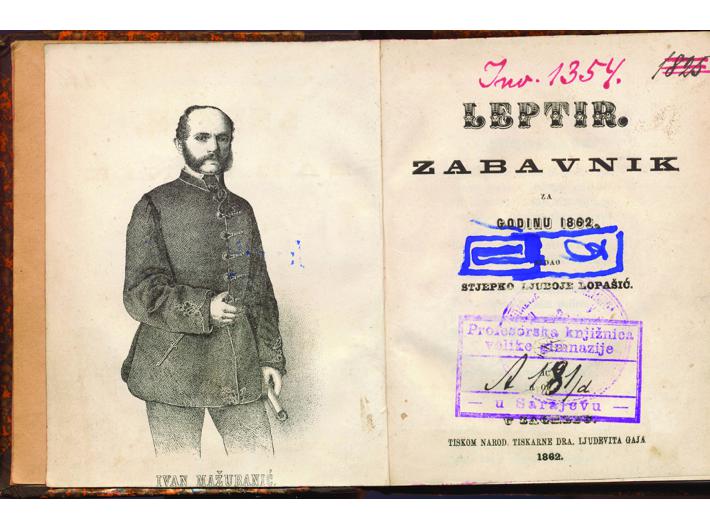 IVAN MAŽURANIĆ.
Inv. 1354.
1825
LEPTIR.
ZABAVNIK
ZA
GODINU 1862.
STJEPKO LJUBOJE LOPAŠIĆ.
Profesorska knjižnica
velike gimnazije
A 181/d
— u Sarajevu —
U ZAGREBU.
TISKOM NAROD. TISKARNE DRA. LJUDEVITA GAJA
1862.